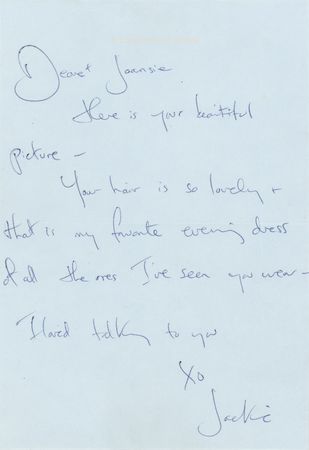 Dearest Joansie
Here is your beautiful
picture –
Your hair is so lovely +
that is my favorite evening dress
of all the ones I've seen you wear –
I loved talking to you
XO
Jackie